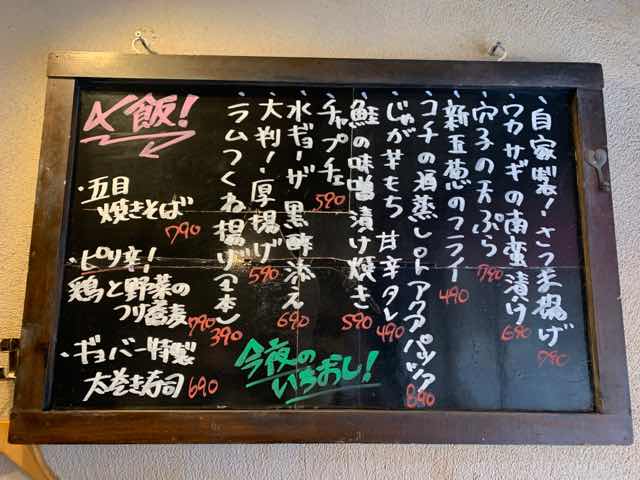 ・自家製!さつま揚げ 790
・ワカサギの南蛮漬け 690
・穴子の天ぷら 790
・新玉葱のフライ 490
・コチの酒蒸しorアクアパッツァ 890
・じゃが芋もち 甘辛タレ 490
・鮭の味噌漬け焼き 590
・チャプチェ 590
・水ギョーザ 黒酢添え 690
・大判!厚揚げ 590
・ラムつくね揚げ(2本) 390
今夜の
いちおし!
〆飯!
・五目
焼きそば 790
・ピリ辛!
鶏と野菜の
つけ蕎麦 790
・ギョバー特製
太巻き寿司 690